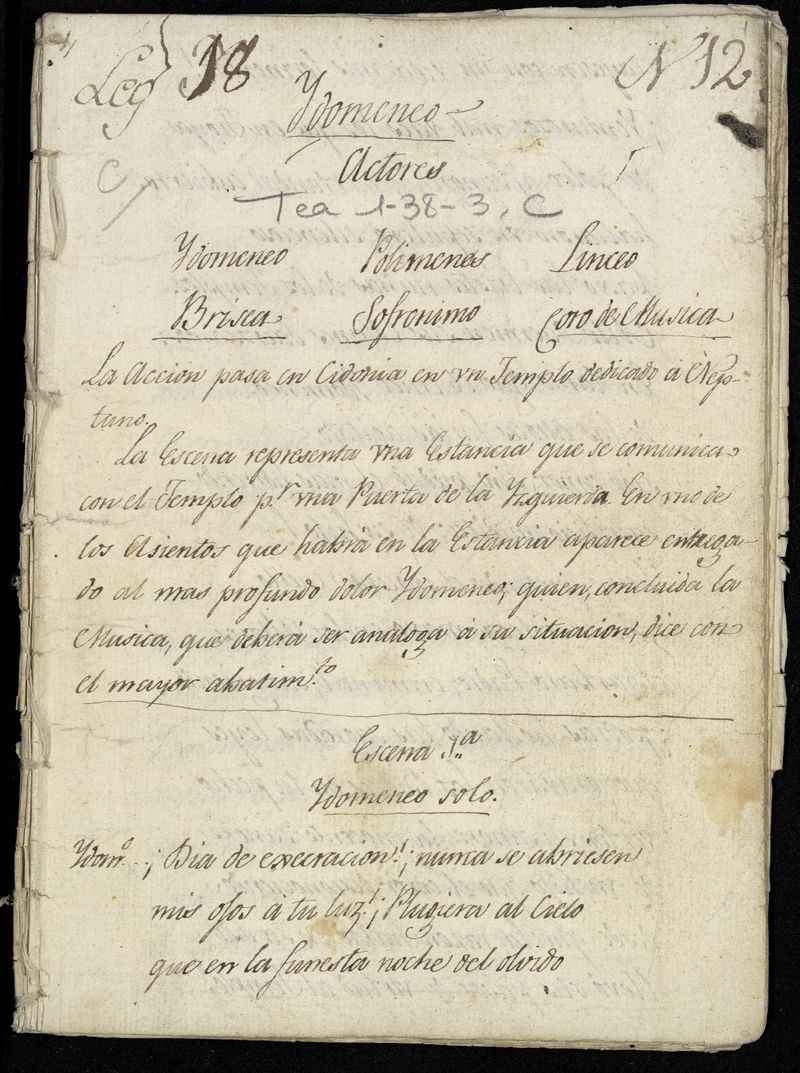 Leg 18
N 12
Ydomeneo
Actores
C
Tea 1-38-3, C
Ydomeneo Polimenes Linceo
Brisea Sofronimo Coro de Musica
La Accion pasa en Cidonia en vn Templo dedicado á Nep-
tuno.
La Escena representa vna Estancia que se comunica
con el Templo p.r vna Puerta de la Yzquierda. En vno de
los Asientos que habrá en la Estancia aparece entrega-
do al mas profundo dolor Ydomeneo; quien, concluida la
Musica, que deberá ser análoga á su situacion, dice con
el mayor abatim.to
Escena 1.a
Ydomeneo solo.
Ydom.o ¡Dia de execracion! ¡nunca se abriesen
mis ojos á tu luz! ¡Plugiera al Cielo
que en la funesta noche del olvido